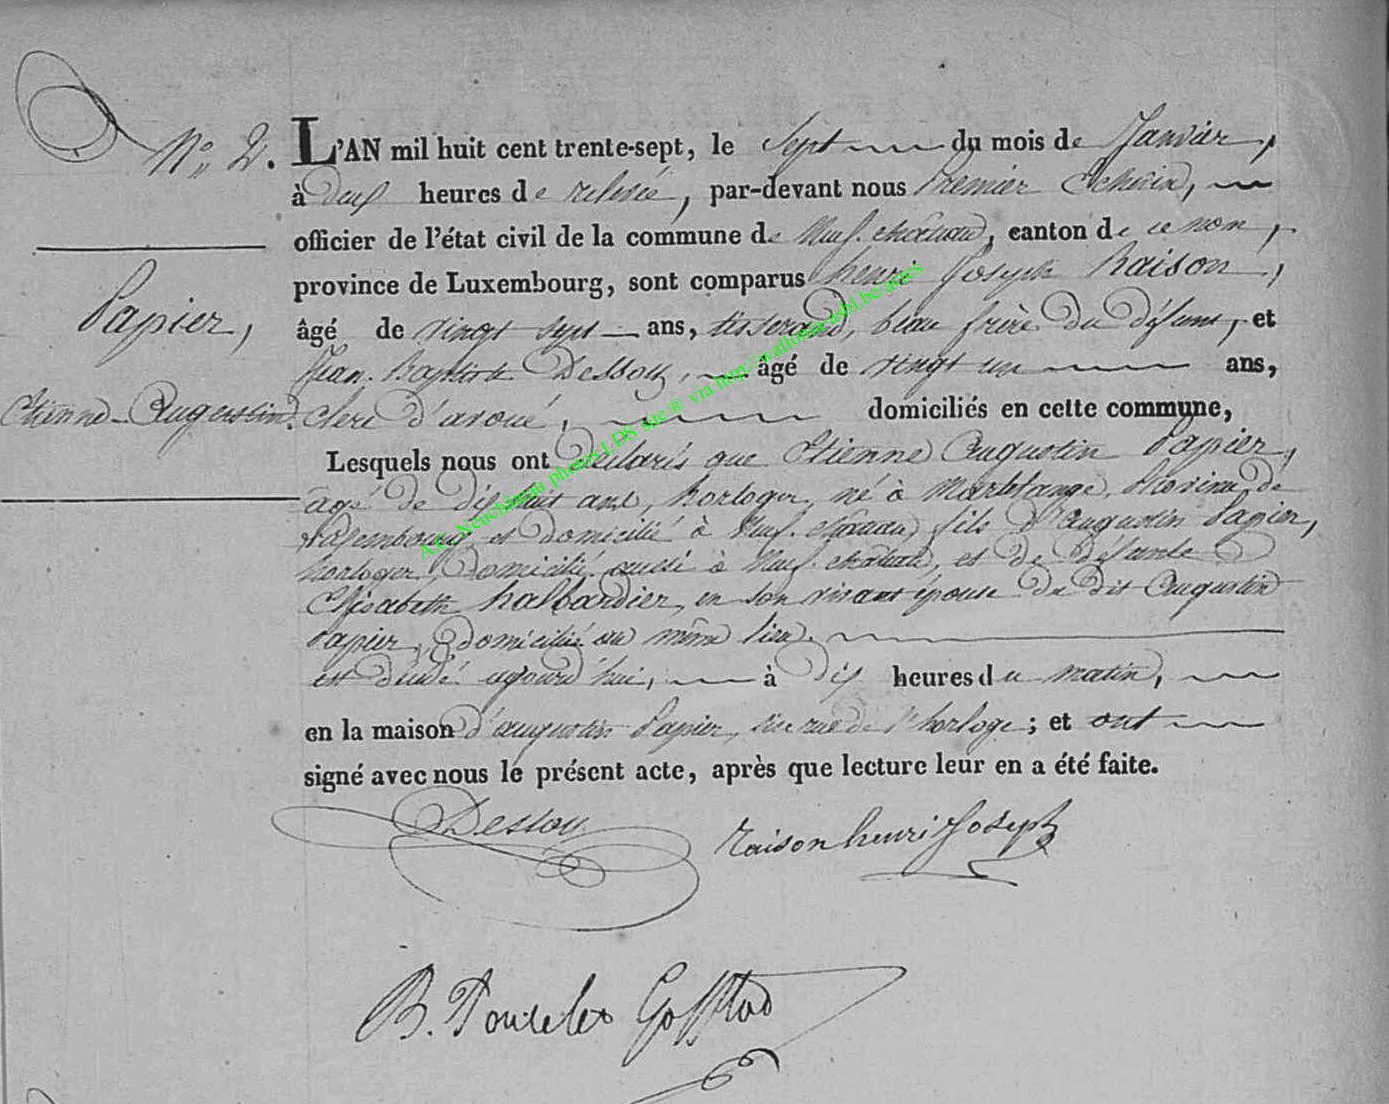 N.° 2.
Papier,
Etienne-Augustin.
L'AN mil huit cent trente-sept, le Sept du mois de Janvier,
à deux heures de relevée, par-devant nous Premier Echevin,
officier de l'état civil de la commune de Neuf-château, canton de ce nom,
province de Luxembourg, sont comparus henri Joseph Raison,
âgé de vingt sept ans, tisserand, beau frère du défunt, et
Jean-Baptiste Dessoy, âgé de vingt un ans,
clerc d'avoué, domiciliés en cette commune,
Lesquels nous ont déclarés que Etienne Augustin Papier,
agé de dix huit ans, horloger, né à Martelange, Province de
Luxembourg et domicilié à Neuf-château, fils d'augustin Papier,
horloger, domicilié aussi à Neuf-château, et de défunte
Elisabeth halbardier, en son vivant épouse du dit Augustin
Papier, domiciliée au même lieu.
est décédé aujourd'hui, à dix heures du matin,
en la maison d'augustin Papier, sise rue de l'horloge; et ont
signé avec nous le présent acte, après que lecture leur en a été faite.
Dessoy
Raison henri Joseph
B.
A.E. Neuchâteau photos LDS sue ® via http://wallonia-asbl.be/actes